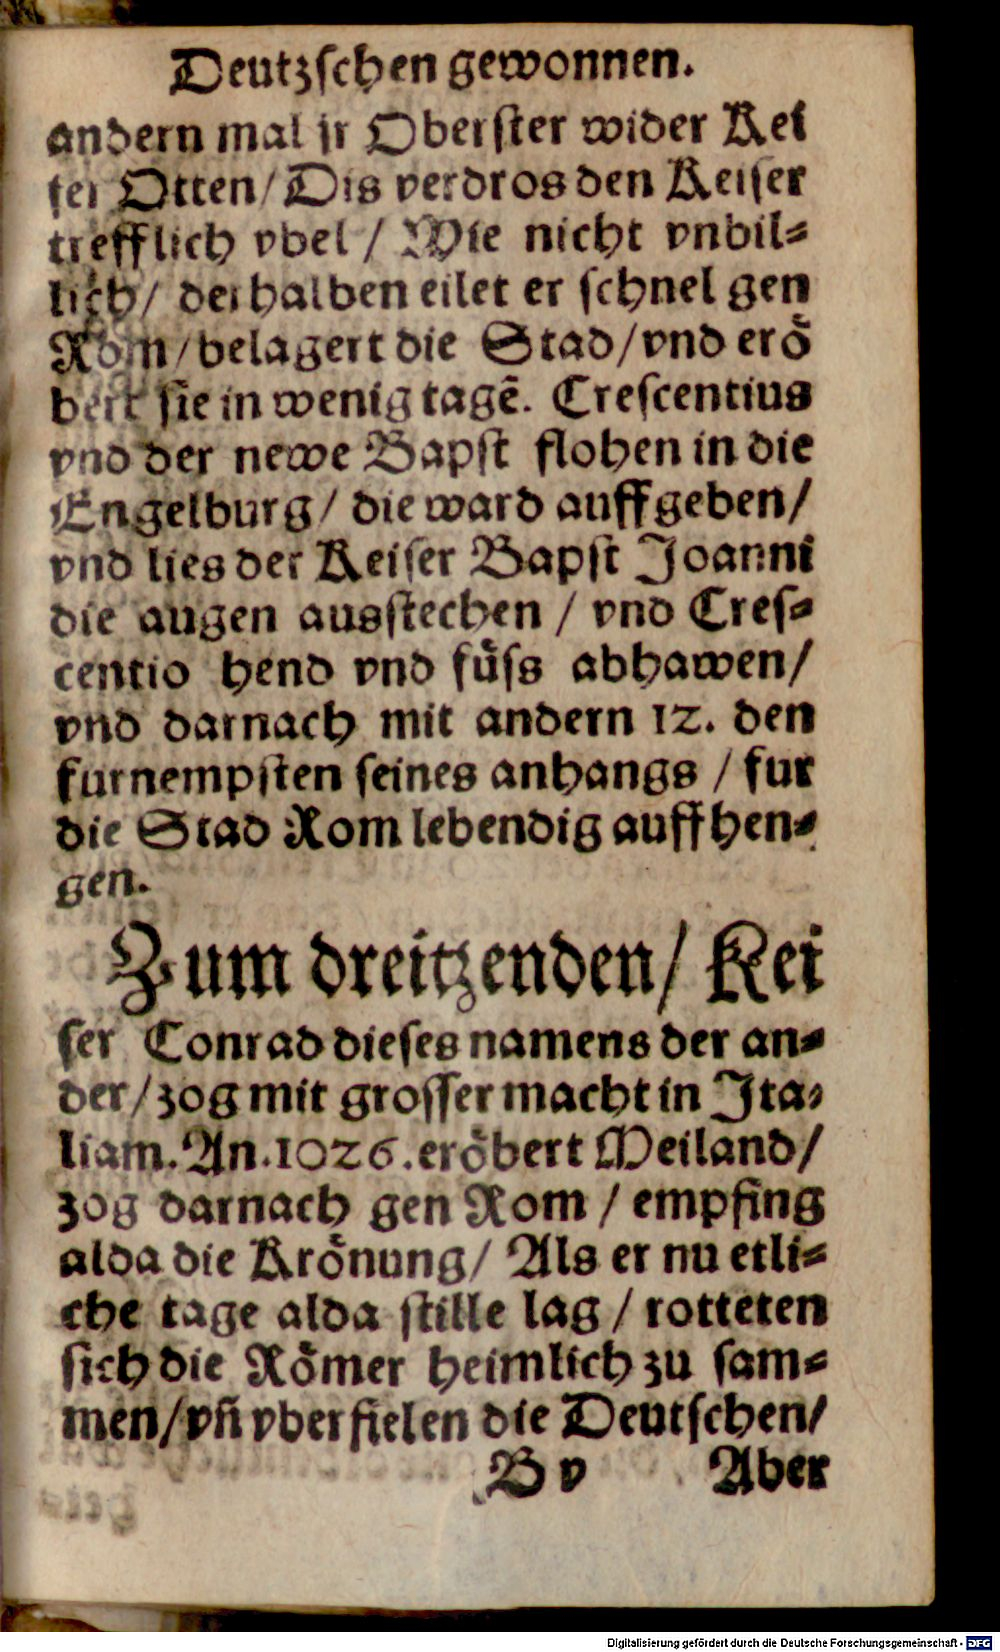 Deutzſchen gewonnen.
andern mal jr Oberſter wider Kei
ſer Otten/ Dis verdros den Keiſer
trefflich vbel / Wie nicht vnbil⸗
lich/ derhalben eilet er ſchnel gen
Rom/belagert die Stad/vnd eroͤ
bert ſie in wenig tagē. Creſcentius
vnd der newe Bapſt flohen in die
Engelburg/ die ward auffgeben/
vnd lies der Keiſer Bapſt Joanni
die augen ausſtechen / vnd Creſ⸗
centio hend vnd fuͤſs abhawen/
vnd darnach mit andern 12. den
furnempſten ſeines anhangs / fur
die Stad Rom lebendig auffhen⸗
gen.
Zum dreitzenden/ Kei
ſer Conrad dieſes namens der an⸗
der/zog mit groſſer macht in Ita⸗
liam. An.1026.eroͤbert Meiland/
zog darnach gen Rom / empfing
alda die Kroͤnung/ Als er nu etli⸗
che tage alda ſtille lag / rotteten
ſich die Roͤmer heimlich zu ſam⸗
men/vñ vberfielen die Deutſchen/
B v Aber
Digitalisierung gefördert durch die Deutsche Forschungsgemeinschaft - DFG